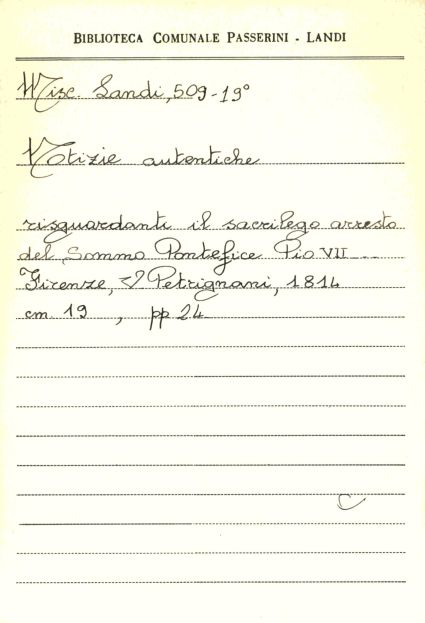 BIBLIOTECA COMUNALE PASSERINI - LANDI
Misc. Landi, 509-19°
Notizie autentiche
risguardanti il sacrilego arresto
del Sommo Pontefice Pio VII
Firenze, Petrignani, 1814
cm. 19, pp 24
C